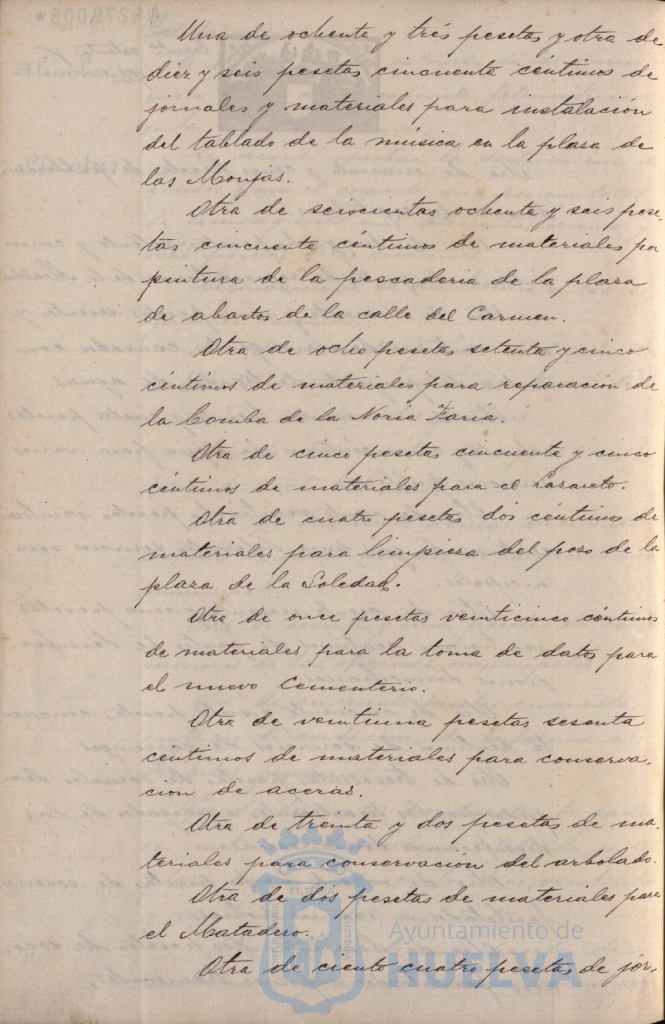 Una de ochenta y trés pesetas y otra de
diez y seis pesetas cincuenta céntimos de
jornales y materiales para instalación
del tablado de la música en la plaza de
las Monjas.
Otra de seiscientas ochenta y seis pese-
tas cincuenta céntimos de materiales pa
pintura de la pescaderia de la plaza
de abastos de la calle del Carmen.
Otra de ocho pesetas setenta y cinco
céntimos de materiales para reparación de
la bomba de la Noria Faria.
Otra de cinco pesetas cincuenta y cinco
céntimos de materiales para el Lazareto.
Otra de cuatro pesetas dós centimos de
materiales para limpieza del pozo de la
plaza de la Soledad.
Otra de once pesetas veinticinco céntimos
de materiales para la toma de datos para
el nuevo Cementerio.
Otra de veintiuna pesetas sesenta
céntimos de materiales para conserva-
cion de aceras.
Otra de treinta y dos pesetas de ma-
teriales para conservación del arbolado.
Otra de dós pesetas de materiales para
el Matadero.
Otra de ciento cuatro pesetas de jor-
Ayuntamiento de
HUELVA